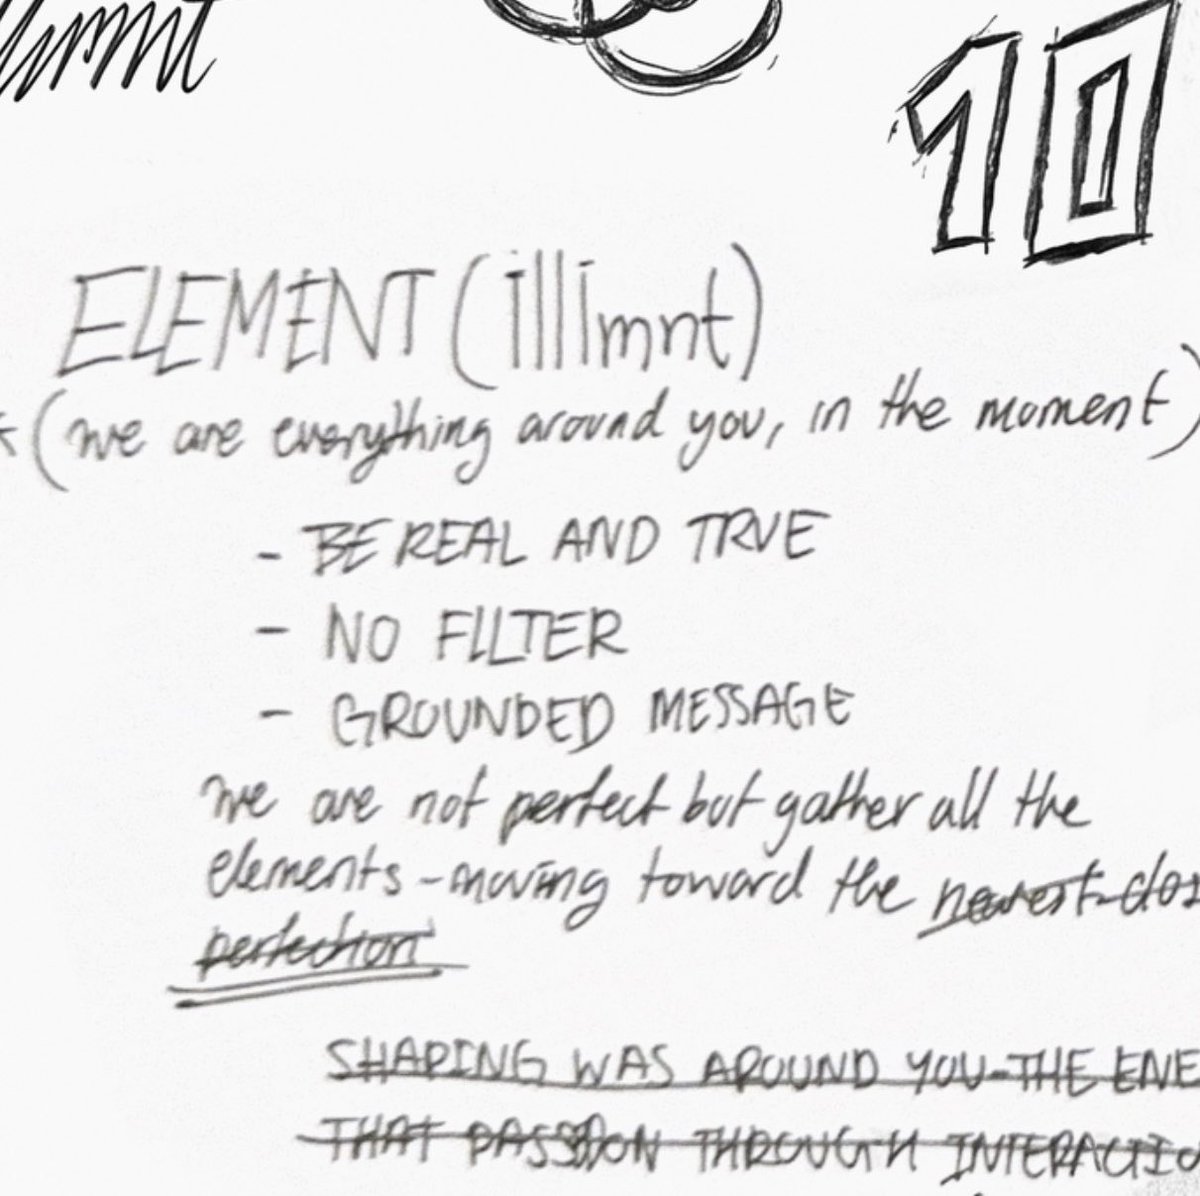 10
ELEMENT (illimnt)
(we are everything around you, in the moment)
- BE REAL AND TRUE
- NO FILTER
- GROUNDED MESSAGE
we are not perfect but gather all the
elements - moving toward the nearest
perfection
SHAPING WAS AROUND YOU - THE
THAT PASSION THROUGH